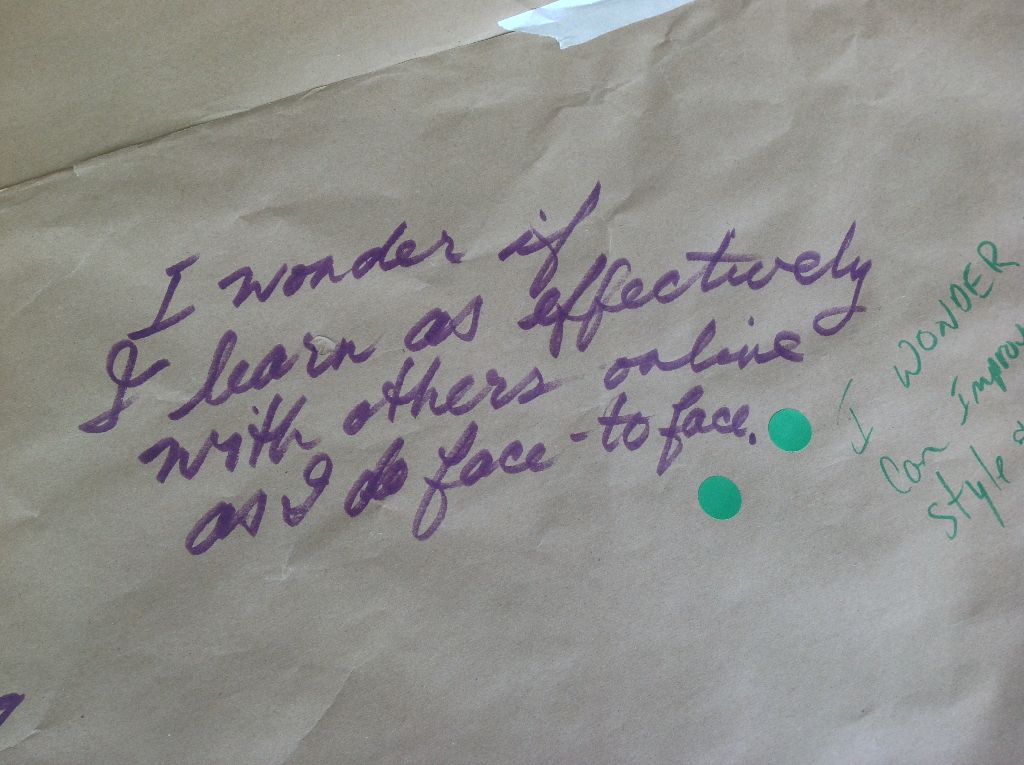 I wonder if
I learn as effectively
with others online
as I do face-to face.
I WONDER
I
Can Improv
style